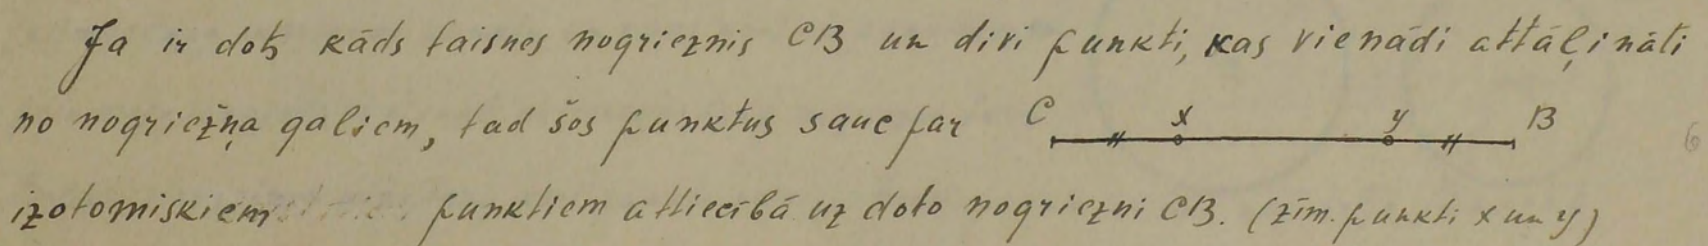 Ja ir dots kāds taisnes nogrieznis CB un divi punkti, kas vienādi attāļināti
no nogriežņa galiem, tad šos punktus sauc par C x y B
izotomiskiem punktiem attiecībā uz doto nogriezni CB. (zīm. punkti x un y)